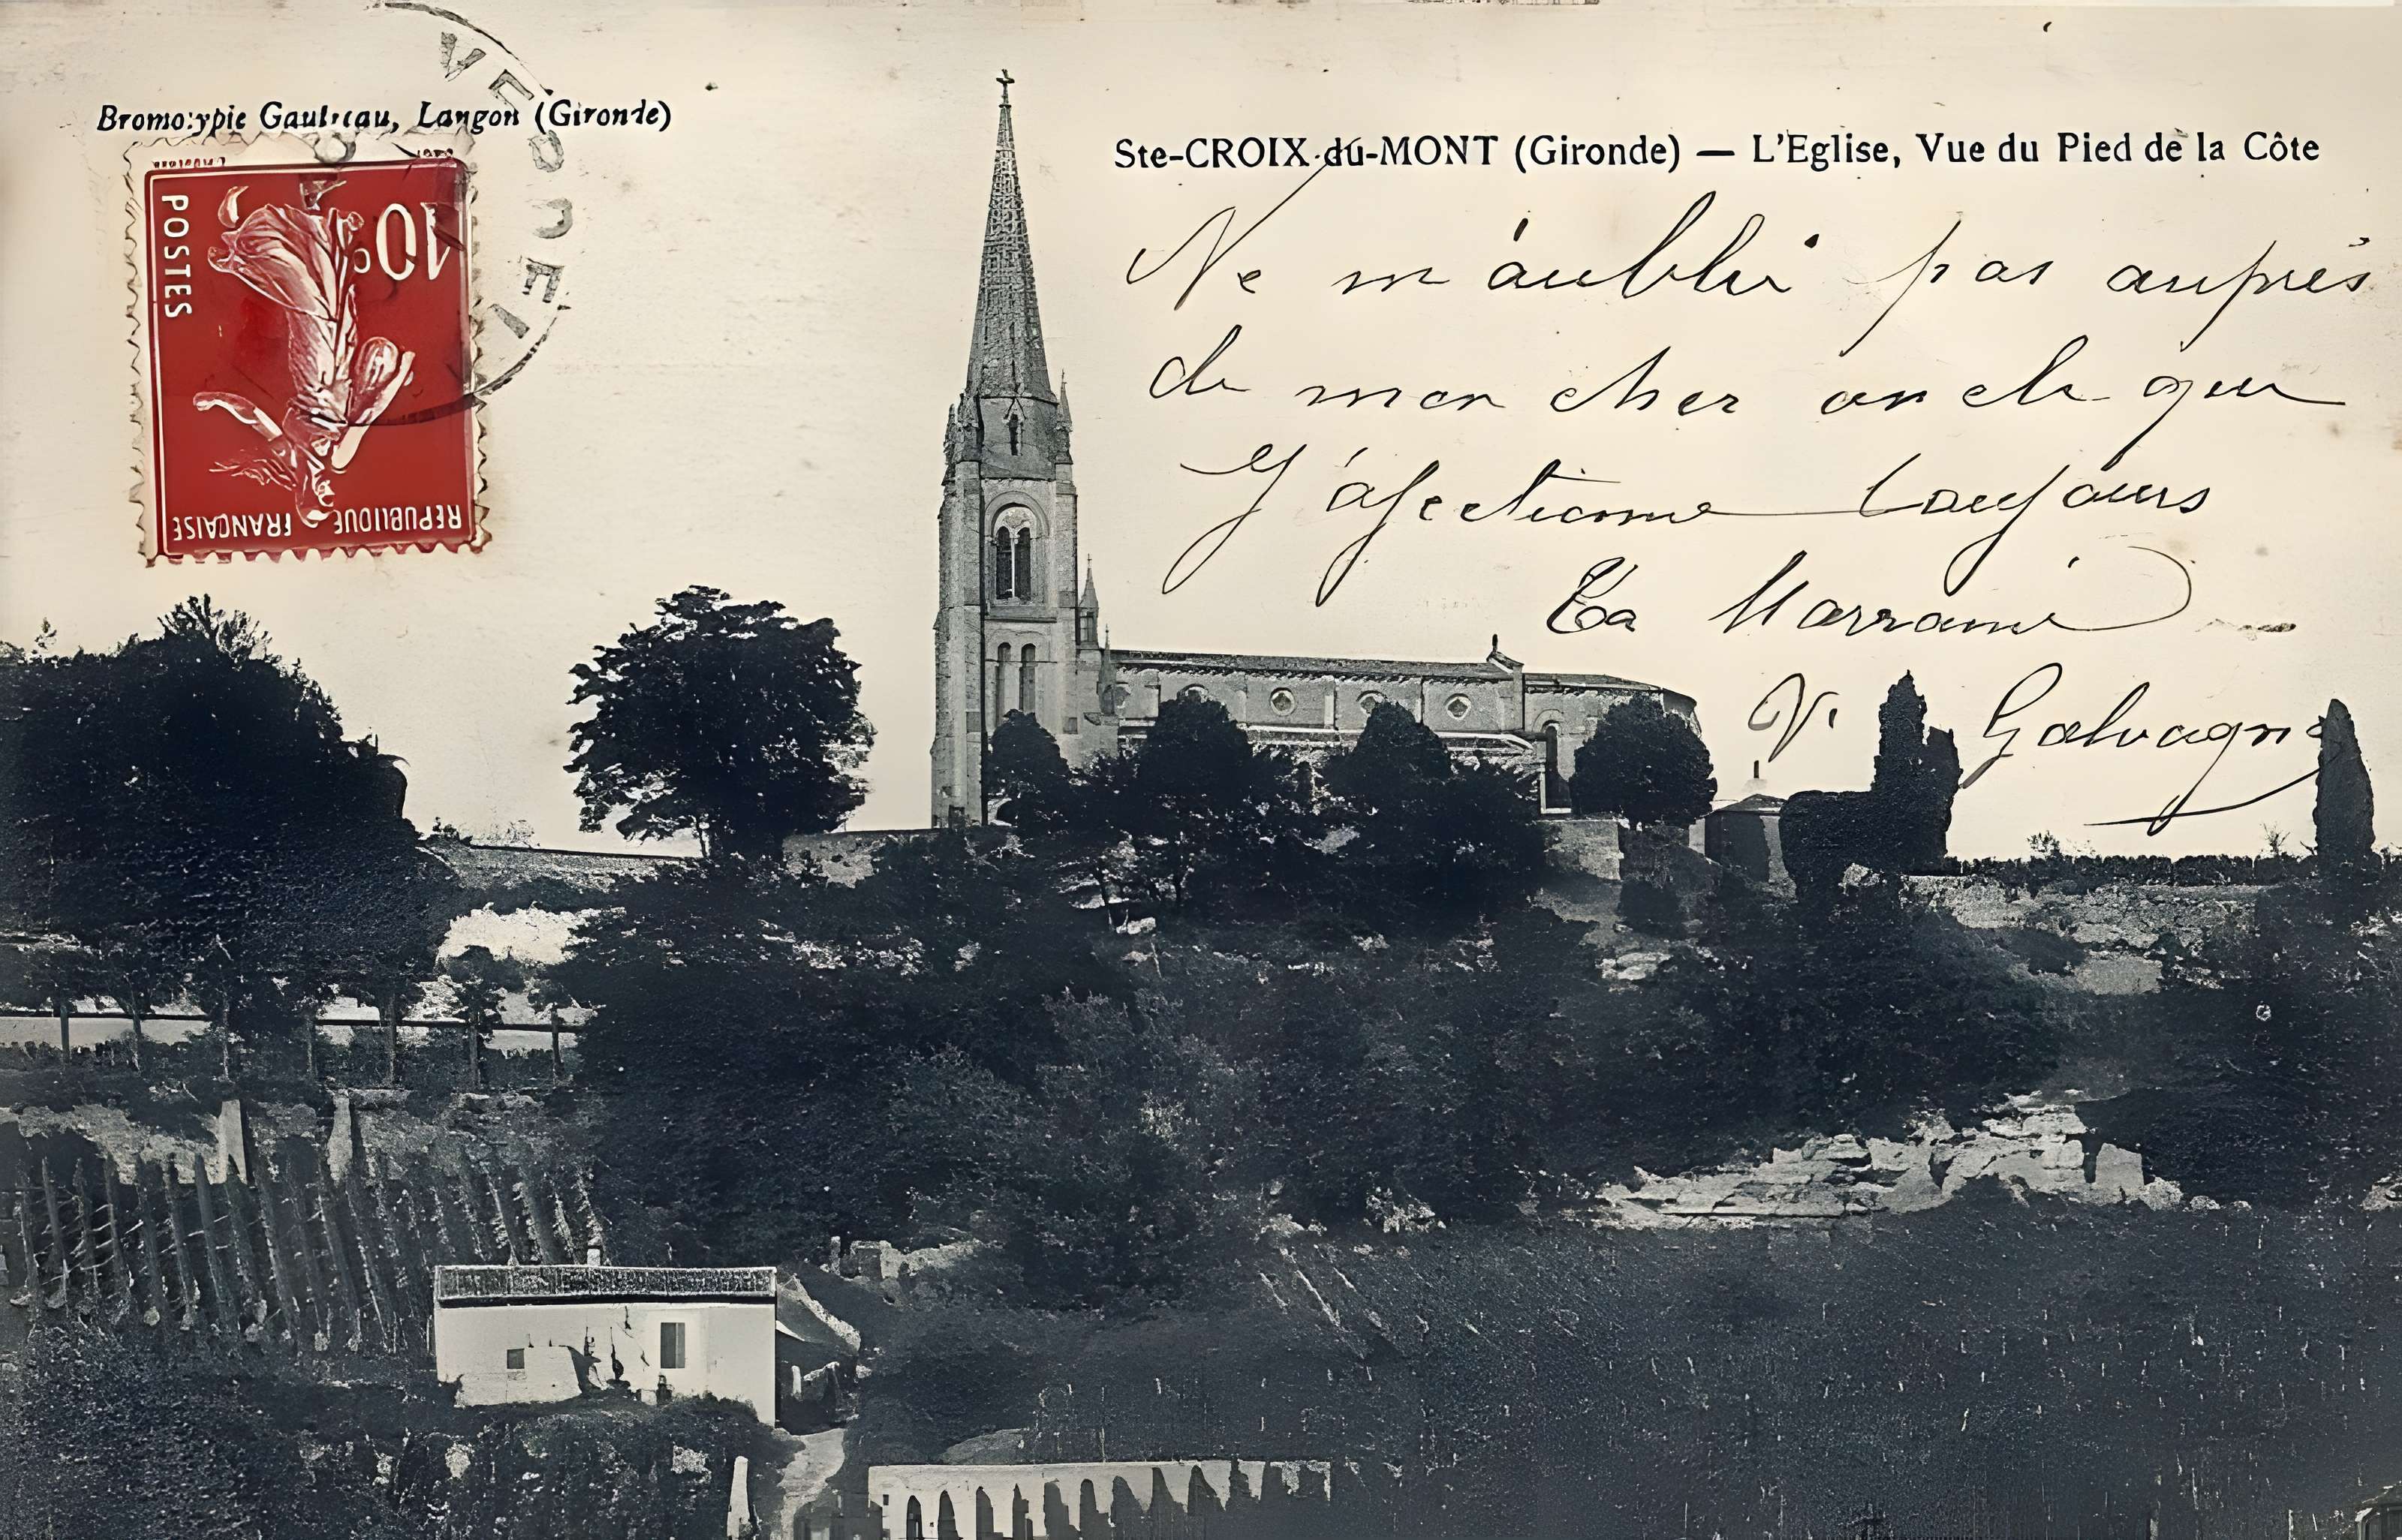 Bromotypie Gautreau, Langon (Gironde)
Ste-CROIX-du-MONT (Gironde) — L'Eglise, Vue du Pied de la Côte
POSTES
10c
REPUBLIQUE FRANÇAISE
Ne m'aublii pas auprès
de mon cher oncle que
J'afectionne toujours
Ta Marraine
V. Galvagne